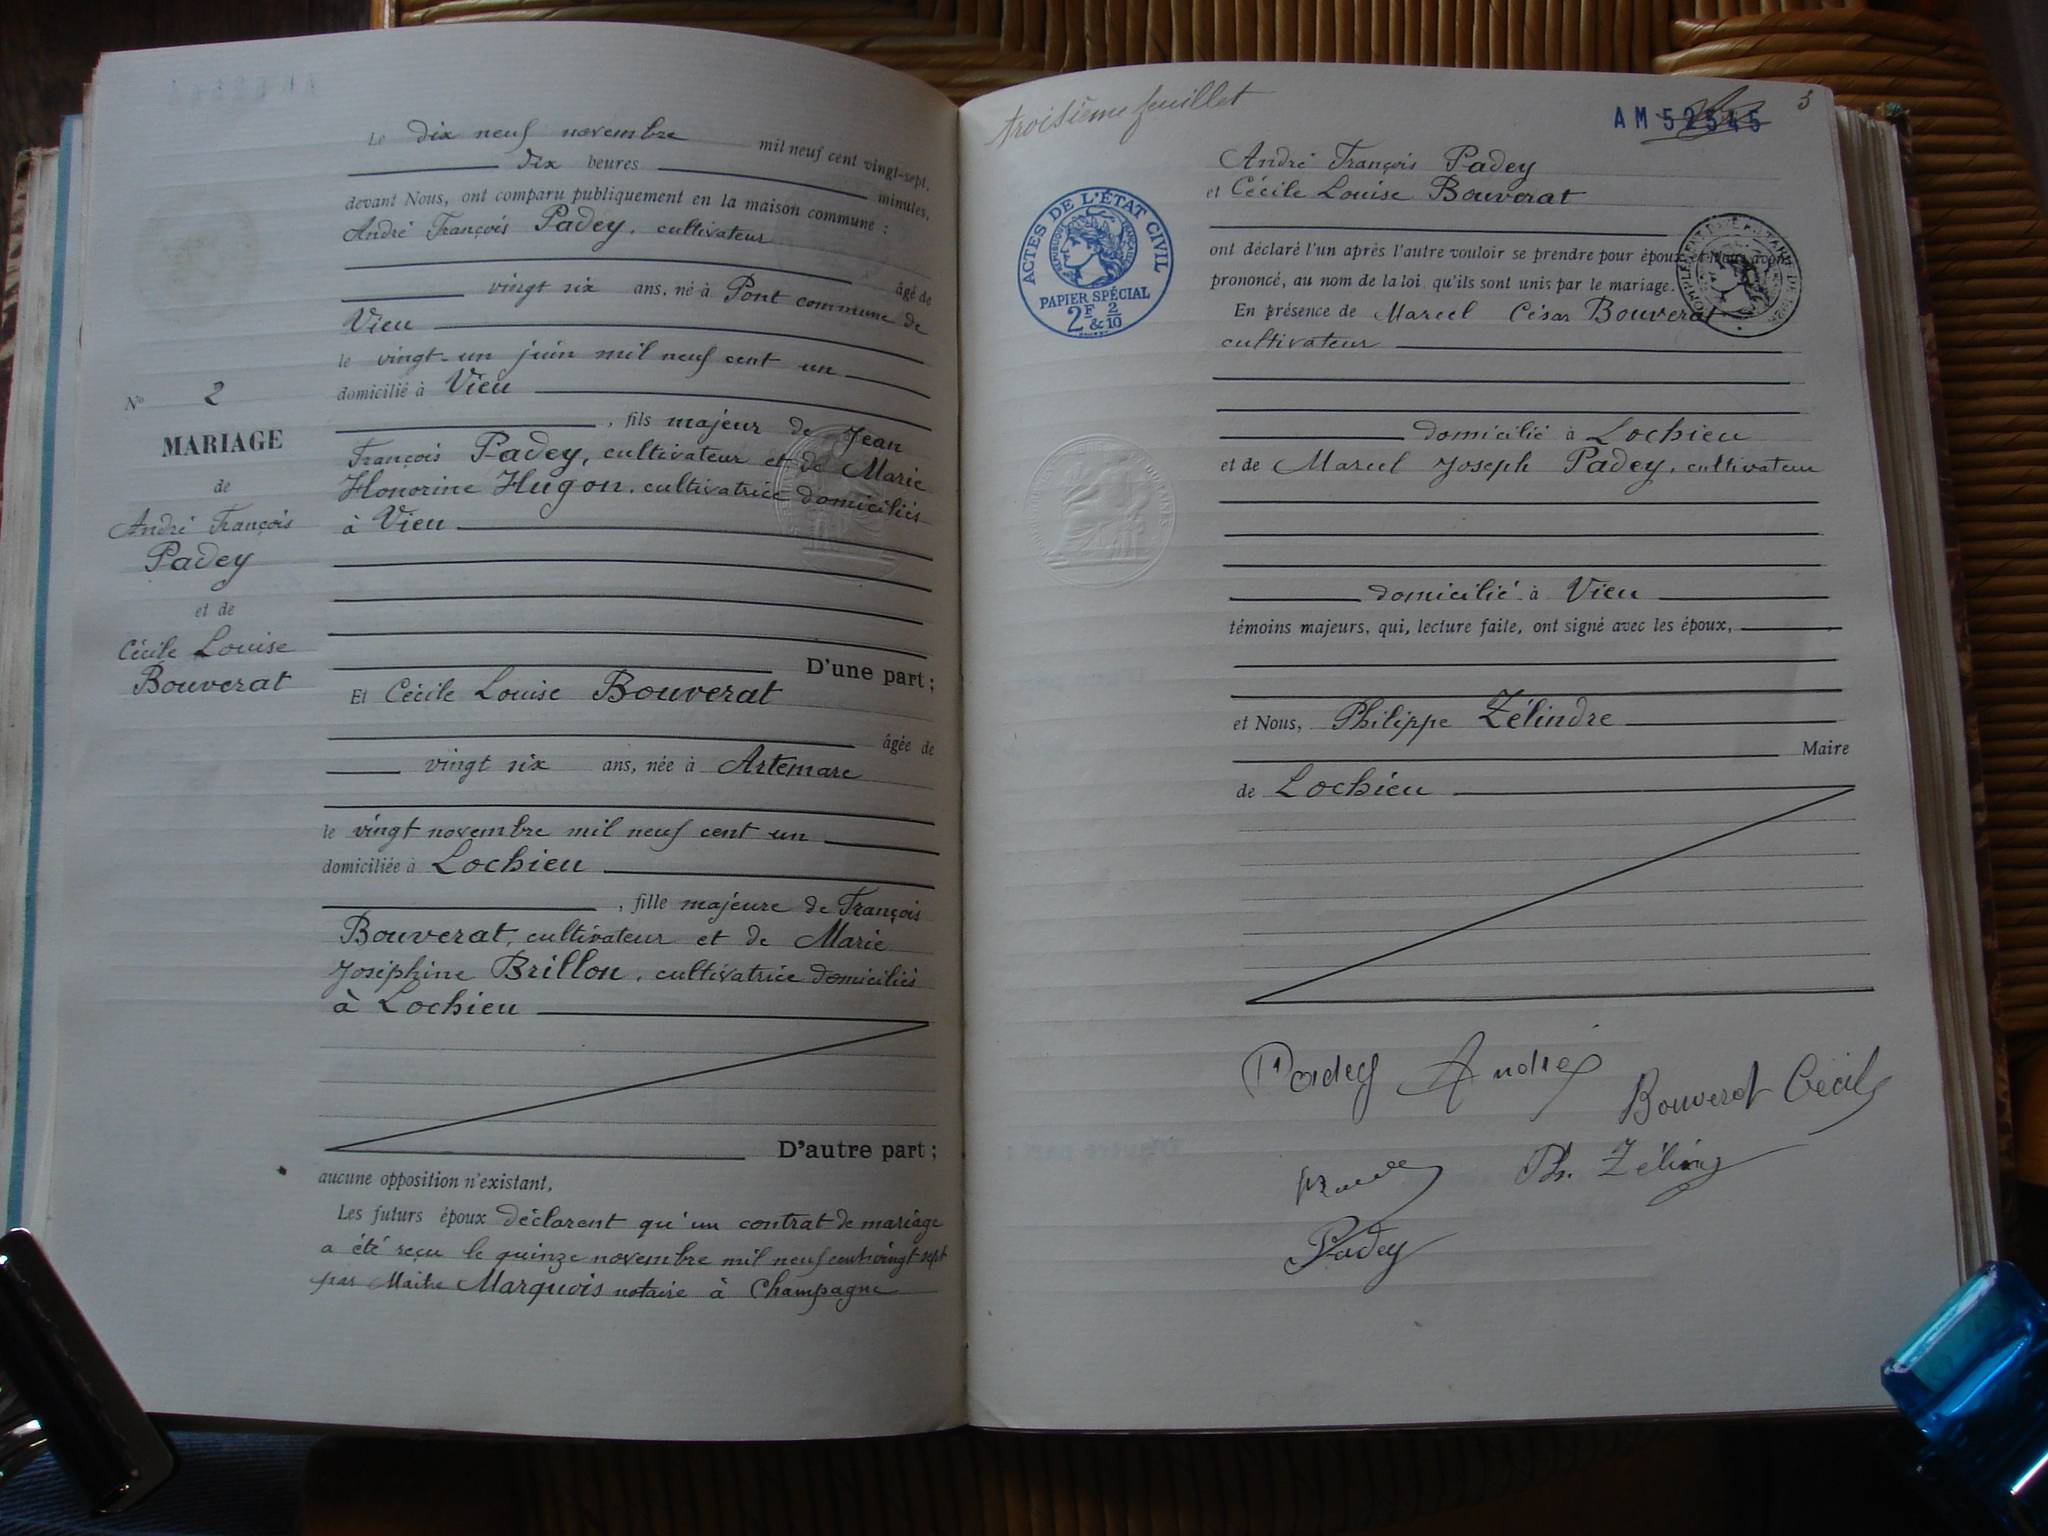 Le dix neuf novembre mil neuf cent vingt-sept,
dix heures minutes,
devant Nous, ont comparu publiquement en la maison commune :
André François Padey, cultivateur
âgé de
vingt six ans, né à Pont commune de
Vieu
le vingt-un juin mil neuf cent un
domicilié à Vieu
, fils majeur de Jean
François Padey, cultivateur et de Marie
Honorine Hugon, cultivatrice domiciliés
à Vieu
D'une part ;
Et Cécile Louise Bouverat
âgée de
vingt six ans, née à Artemare
le vingt novembre mil neuf cent un
domiciliée à Lochieu
, fille majeure de François
Bouverat, cultivateur et de Marie
Joséphine Brillon, cultivatrice domiciliés
à Lochieu
D'autre part ;
aucune opposition n'existant,
Les futurs époux déclarent qu'un contrat de mariage
a été reçu le quinze novembre mil neuf cent vingt sept
par Maitre Marquois notaire à Champagne
N° 2
MARIAGE
de
André François
Padey
et de
Cécile Louise
Bouverat
troisième feuillet
AM 52545
3
André François Padey
et Cécile Louise Bouverat
ont déclaré l'un après l'autre vouloir se prendre pour époux et Nous avons
prononcé, au nom de la loi, qu'ils sont unis par le mariage.
En présence de Marcel César Bouverat
cultivateur
domicilié à Lochieu
et de Marcel Joseph Padey, cultivateur
domicilié à Vieu
témoins majeurs, qui, lecture faite, ont signé avec les époux,
et Nous, Philippe Zélindre
Maire
de Lochieu
ACTES DE L'ÉTAT CIVIL
RÉPUBLIQUE FRANÇAISE
PAPIER SPÉCIAL
2F & 2/10
Padey André
Bouverat Cécile
Ph. Zélind
Padey